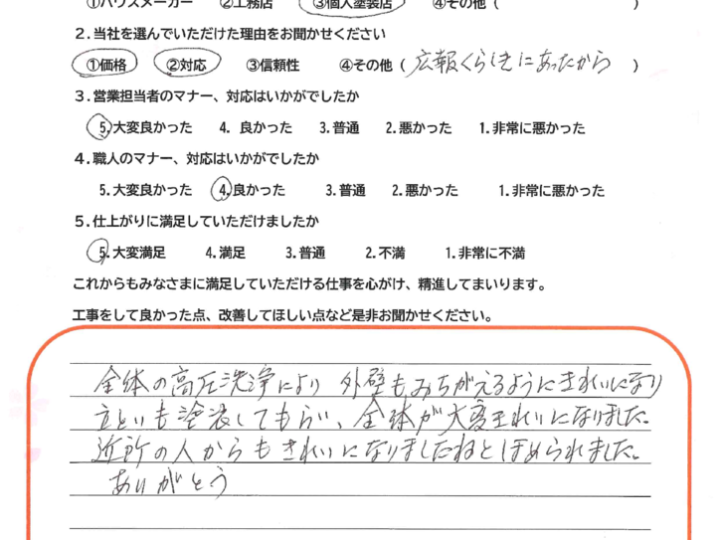 ①ハウスメーカー ②工務店 ③個人塗装店 ④その他( )
2.当社を選んでいただけた理由をお聞かせください
①価格 ②対応 ③信頼性 ④その他( 広報くらしきにあったから )
3.営業担当者のマナー、対応はいかがでしたか
5.大変良かった 4.良かった 3.普通 2.悪かった 1.非常に悪かった
4.職人のマナー、対応はいかがでしたか
5.大変良かった 4.良かった 3.普通 2.悪かった 1.非常に悪かった
5.仕上がりに満足していただけましたか
5.大変満足 4.満足 3.普通 2.不満 1.非常に不満
これからもみなさまに満足していただける仕事を心がけ、精進してまいります。
工事をして良かった点、改善してほしい点など是非お聞かせください。
全体の高圧洗浄により 外壁もみちがえるようにきれいになり
といも塗装してもらい、全体が大変きれいになりました。
近所の人からもきれいになりましたねとほめられました。
ありがとう